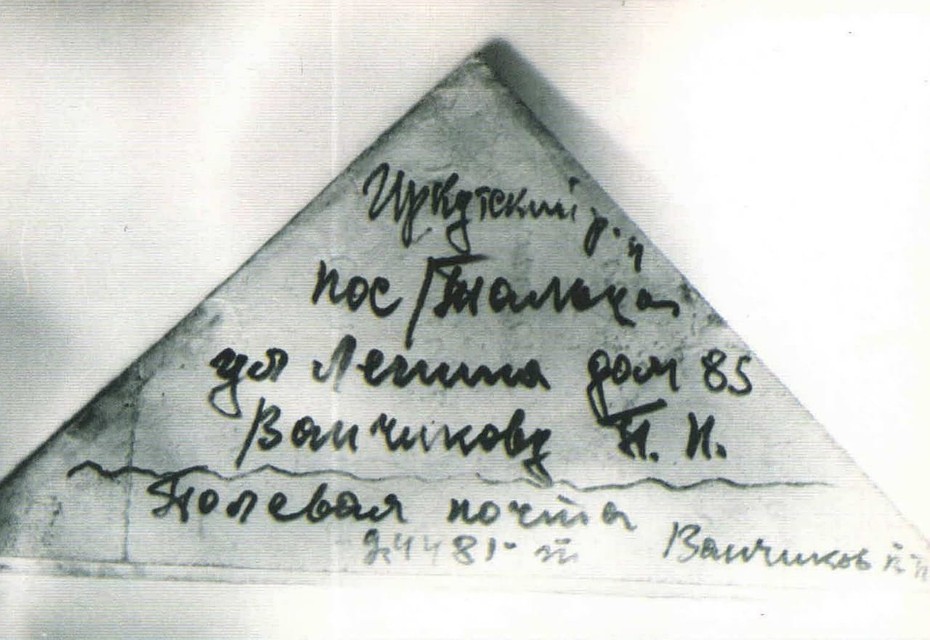 Иркутский р-н
пос Тальцы
ул Ленина дом 85
Ванчикову П. И.
Полевая почта
24481- Ванчиков